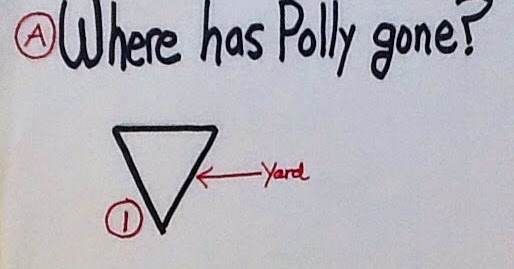 A Where has Polly gone?
Yard
1